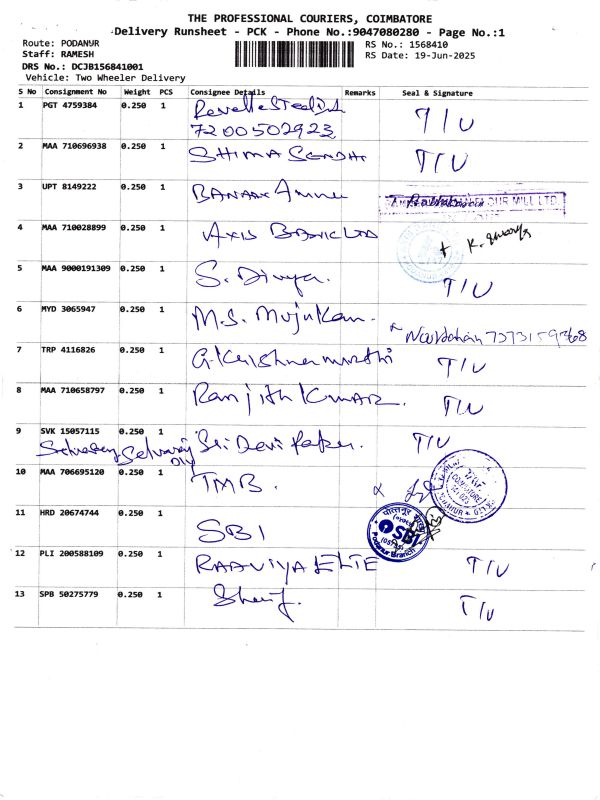 THE PROFESSIONAL COURIERS, COIMBATORE
Delivery Runsheet - PCK - Phone No.:9047080280 - Page No.:1
Route: PODANUR
RS No.: 1568410
Staff: RAMESH
RS Date: 19-Jun-2025
DRS No.: DCJB156841001
Vehicle: Two Wheeler Delivery
S No Consignment No Weight PCS Consignee Details Remarks Seal & Signature
1 PGT 4759384 0.250 1 T/U
7200502923
2 MAA 710696938 0.250 1 T/U
3 UPT 8149222 0.250 1 FLOUR MILL LTD.
4 MAA 710028899 0.250 1 AXIS BANK LTD
5 MAA 9000191309 0.250 1 S. Divya. T/U
6 MYD 3065947 0.250 1 M.S.
7 TRP 4116826 0.250 1 G. Krishnamurthi T/U
8 MAA 710658797 0.250 1 Ranjith Kumar. T/U
9 SVK 15057115 0.250 1 Sri Devi T/U
Selvaraj
10 MAA 706695120 0.250 1 TMB.
11 HRD 20674744 0.250 1 SBI SBI Podanur Branch
12 PLI 200588109 0.250 1 T/U
13 SPB 50275779 0.250 1 T/U